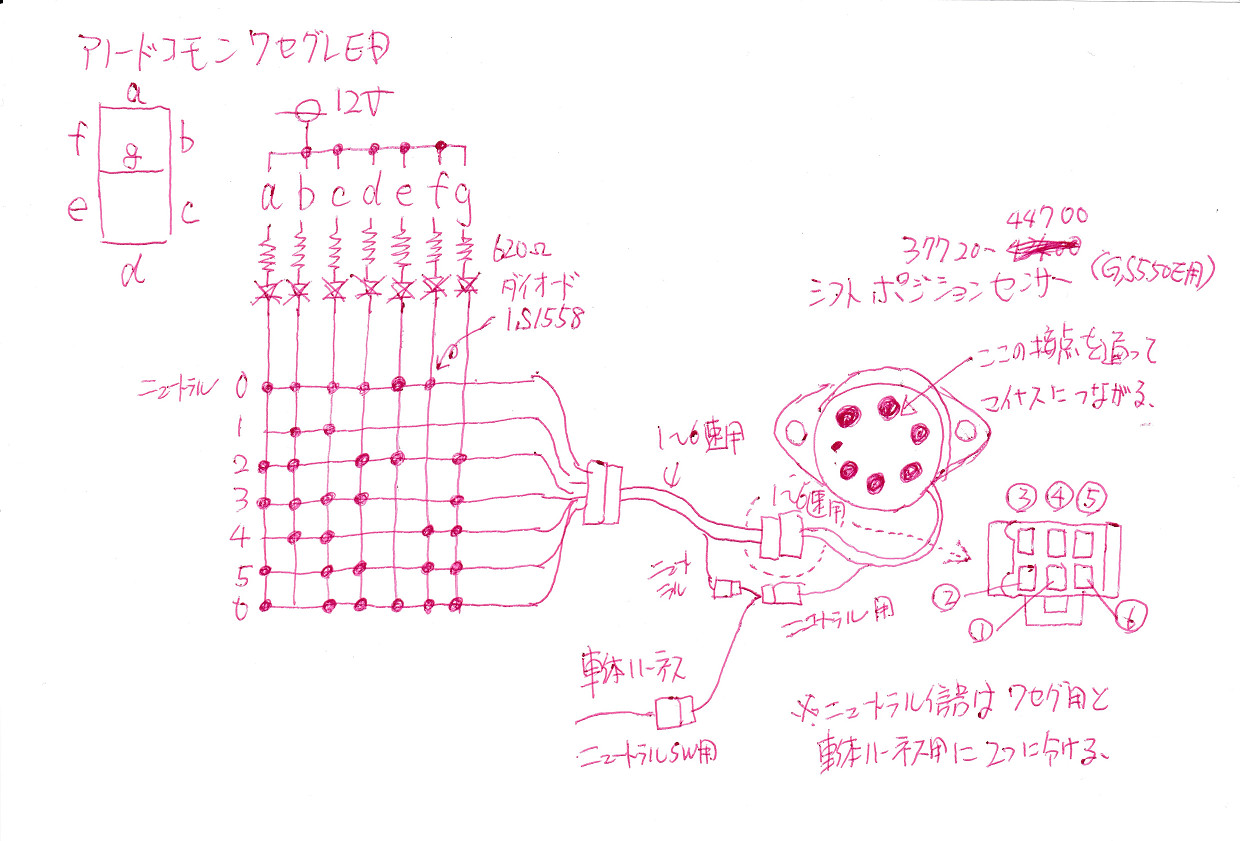 アノードコモン 7セグLED
a
f
b
g
e
c
d
12V
a b c d e f g
620Ω
ダイオード
1S1558
ニュートラル 0
1
2
3
4
5
6
44700
37720-
シフトポジションセンサー (GS550E用)
ここの接点を通って
マイナスにつながる、
1~6速用
1~6速用
ニュートラル
ニュートラル用
③ ④ ⑤
②
①
⑥
車体ハーネス
ニュートラルSW用
※ニュートラル信号は 7セグ用と
車体ハーネス用に2つに分ける、